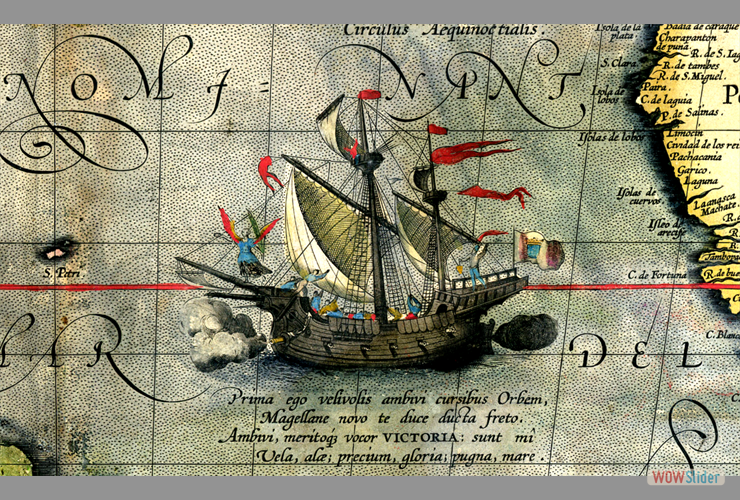 Circulus Aequinoctialis.
NOMI= NANT
Isola de la
plata
Badia de caraque
Charapanton
de puna
R. de S. Iag
S. Clara.
R. de tambes
R. de S. Miguel.
Isola de
lobos
Paita.
C. de laguia
P. de Salinas.
Isolas de lobos
Limocin
Cividad de los rei
Pachacania
Garico.
Laguna
Isolas de
cuervos.
Machate.
S. Petri.
C. de Fortuna
R. de bue
DEL
C. Blanc
Prima ego velivolis ambivi cursibus Orbem,
Magellane novo te duce ducta freto.
Ambivi, meritoq3 vocor VICTORIA: sunt mî
Vela, alæ; precium, gloria; pugna, mare.
WOWSlider